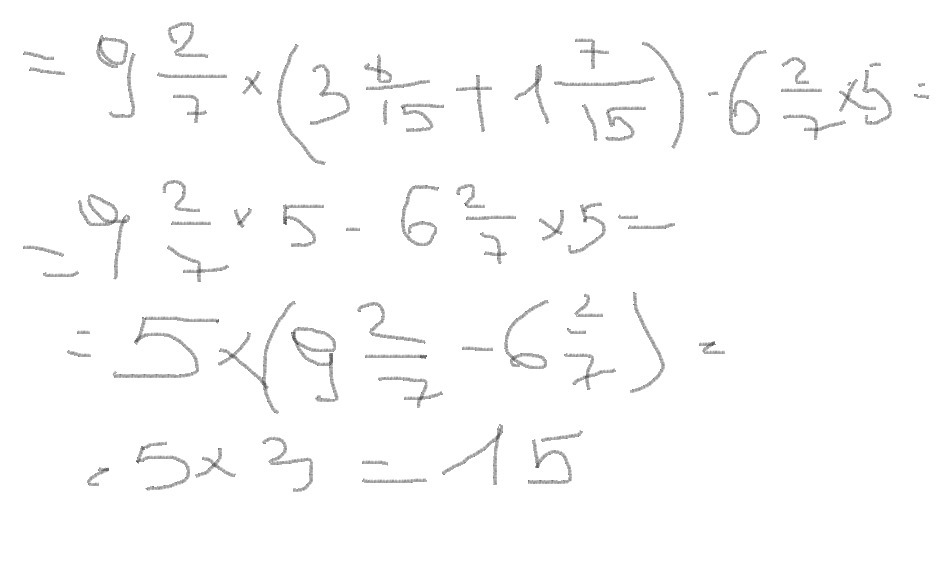 = 9 2/7 × (3 8/15 + 1 7/15) - 6 2/7 × 5 =
= 9 2/7 × 5 - 6 2/7 × 5 =
= 5 × (9 2/7 - 6 2/7) =
= 5 × 3 = 15